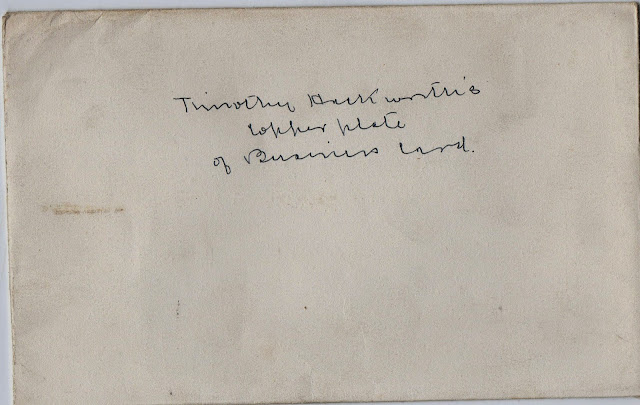 Timothy Hackworth's
copper plate
of Business Card.